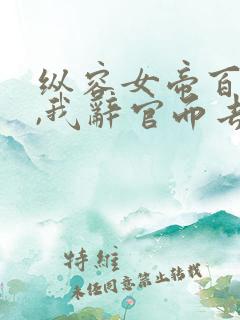 纵容女帝百
,我辞官而去
特維
未经同意禁止转载